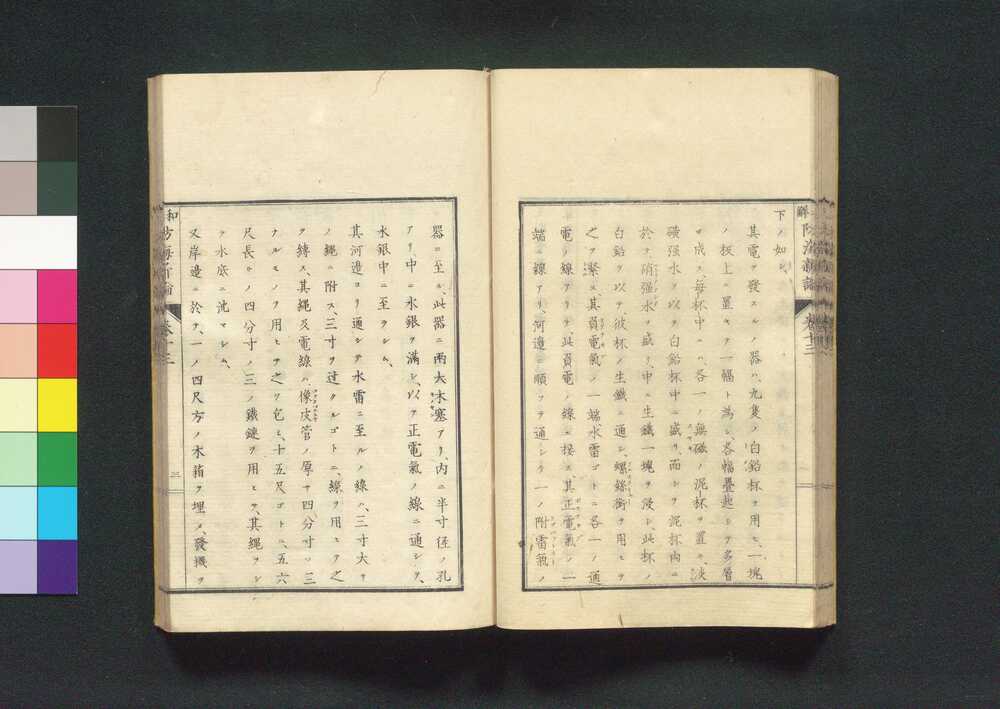 解防海新論 卷十三
下ノ如シ
其電ヲ發スルノ器ハ、九隻ノ白鉛杯ヲ用ヒ、一塊
ノ板上ニ置キテ一幅ト為シ、各幅疊起シテ多層
ヲ成ス、毎杯中ニハ、各一ノ無磁ノ泥杯ヲ置キ、淡
磺强水ヲ以テ白鉛杯中ニ盛リ、而シテ泥杯內ニ
於テ硝强水ヲ盛リ、中ニ生鐵一塊ヲ浸シ、此杯ノ
白鉛ヲ以テ、彼杯ノ生鐵ニ通シ、螺絲銜ヲ用ヒテ
之ヲ緊ス、其負電氣ノ一端水雷ゴトニ各一ノ通
電ノ線アリテ、此負電ノ線ニ接ス、其正電氣ノ一
端ニ線アリ、河邊ニ順フテ通シテ一ノ附電氣ノ
器ニ至ル、此器ニ兩大木塞アリ、內ニ半寸徑ノ孔
アリ中ニ水銀ヲ滿シ、以テ正電氣ノ線ニ通シテ、
水銀中ニ至ラシム、
其河邊ヨリ通シテ水雷ニ至ルノ線ハ、三寸大
ノ繩ニ附ス、三寸ヲ過クルゴトニ、線ヲ用ヒテ之
ヲ縛ス、其繩及電線ハ、像皮管ノ厚サ四分寸ノ三
ナルモノヲ用ヒテ之ヲ包ミ、十五尺ゴトニ、五六
尺長ヒノ四分寸ノ三ノ鐵鏈ヲ用ヒテ、其繩ヲシ
テ水底ニ沈マシム、
又岸邊ニ於テ、一ノ四尺方ノ木箱ヲ埋メ、發機ヲ
和防海新論 卷十三
三